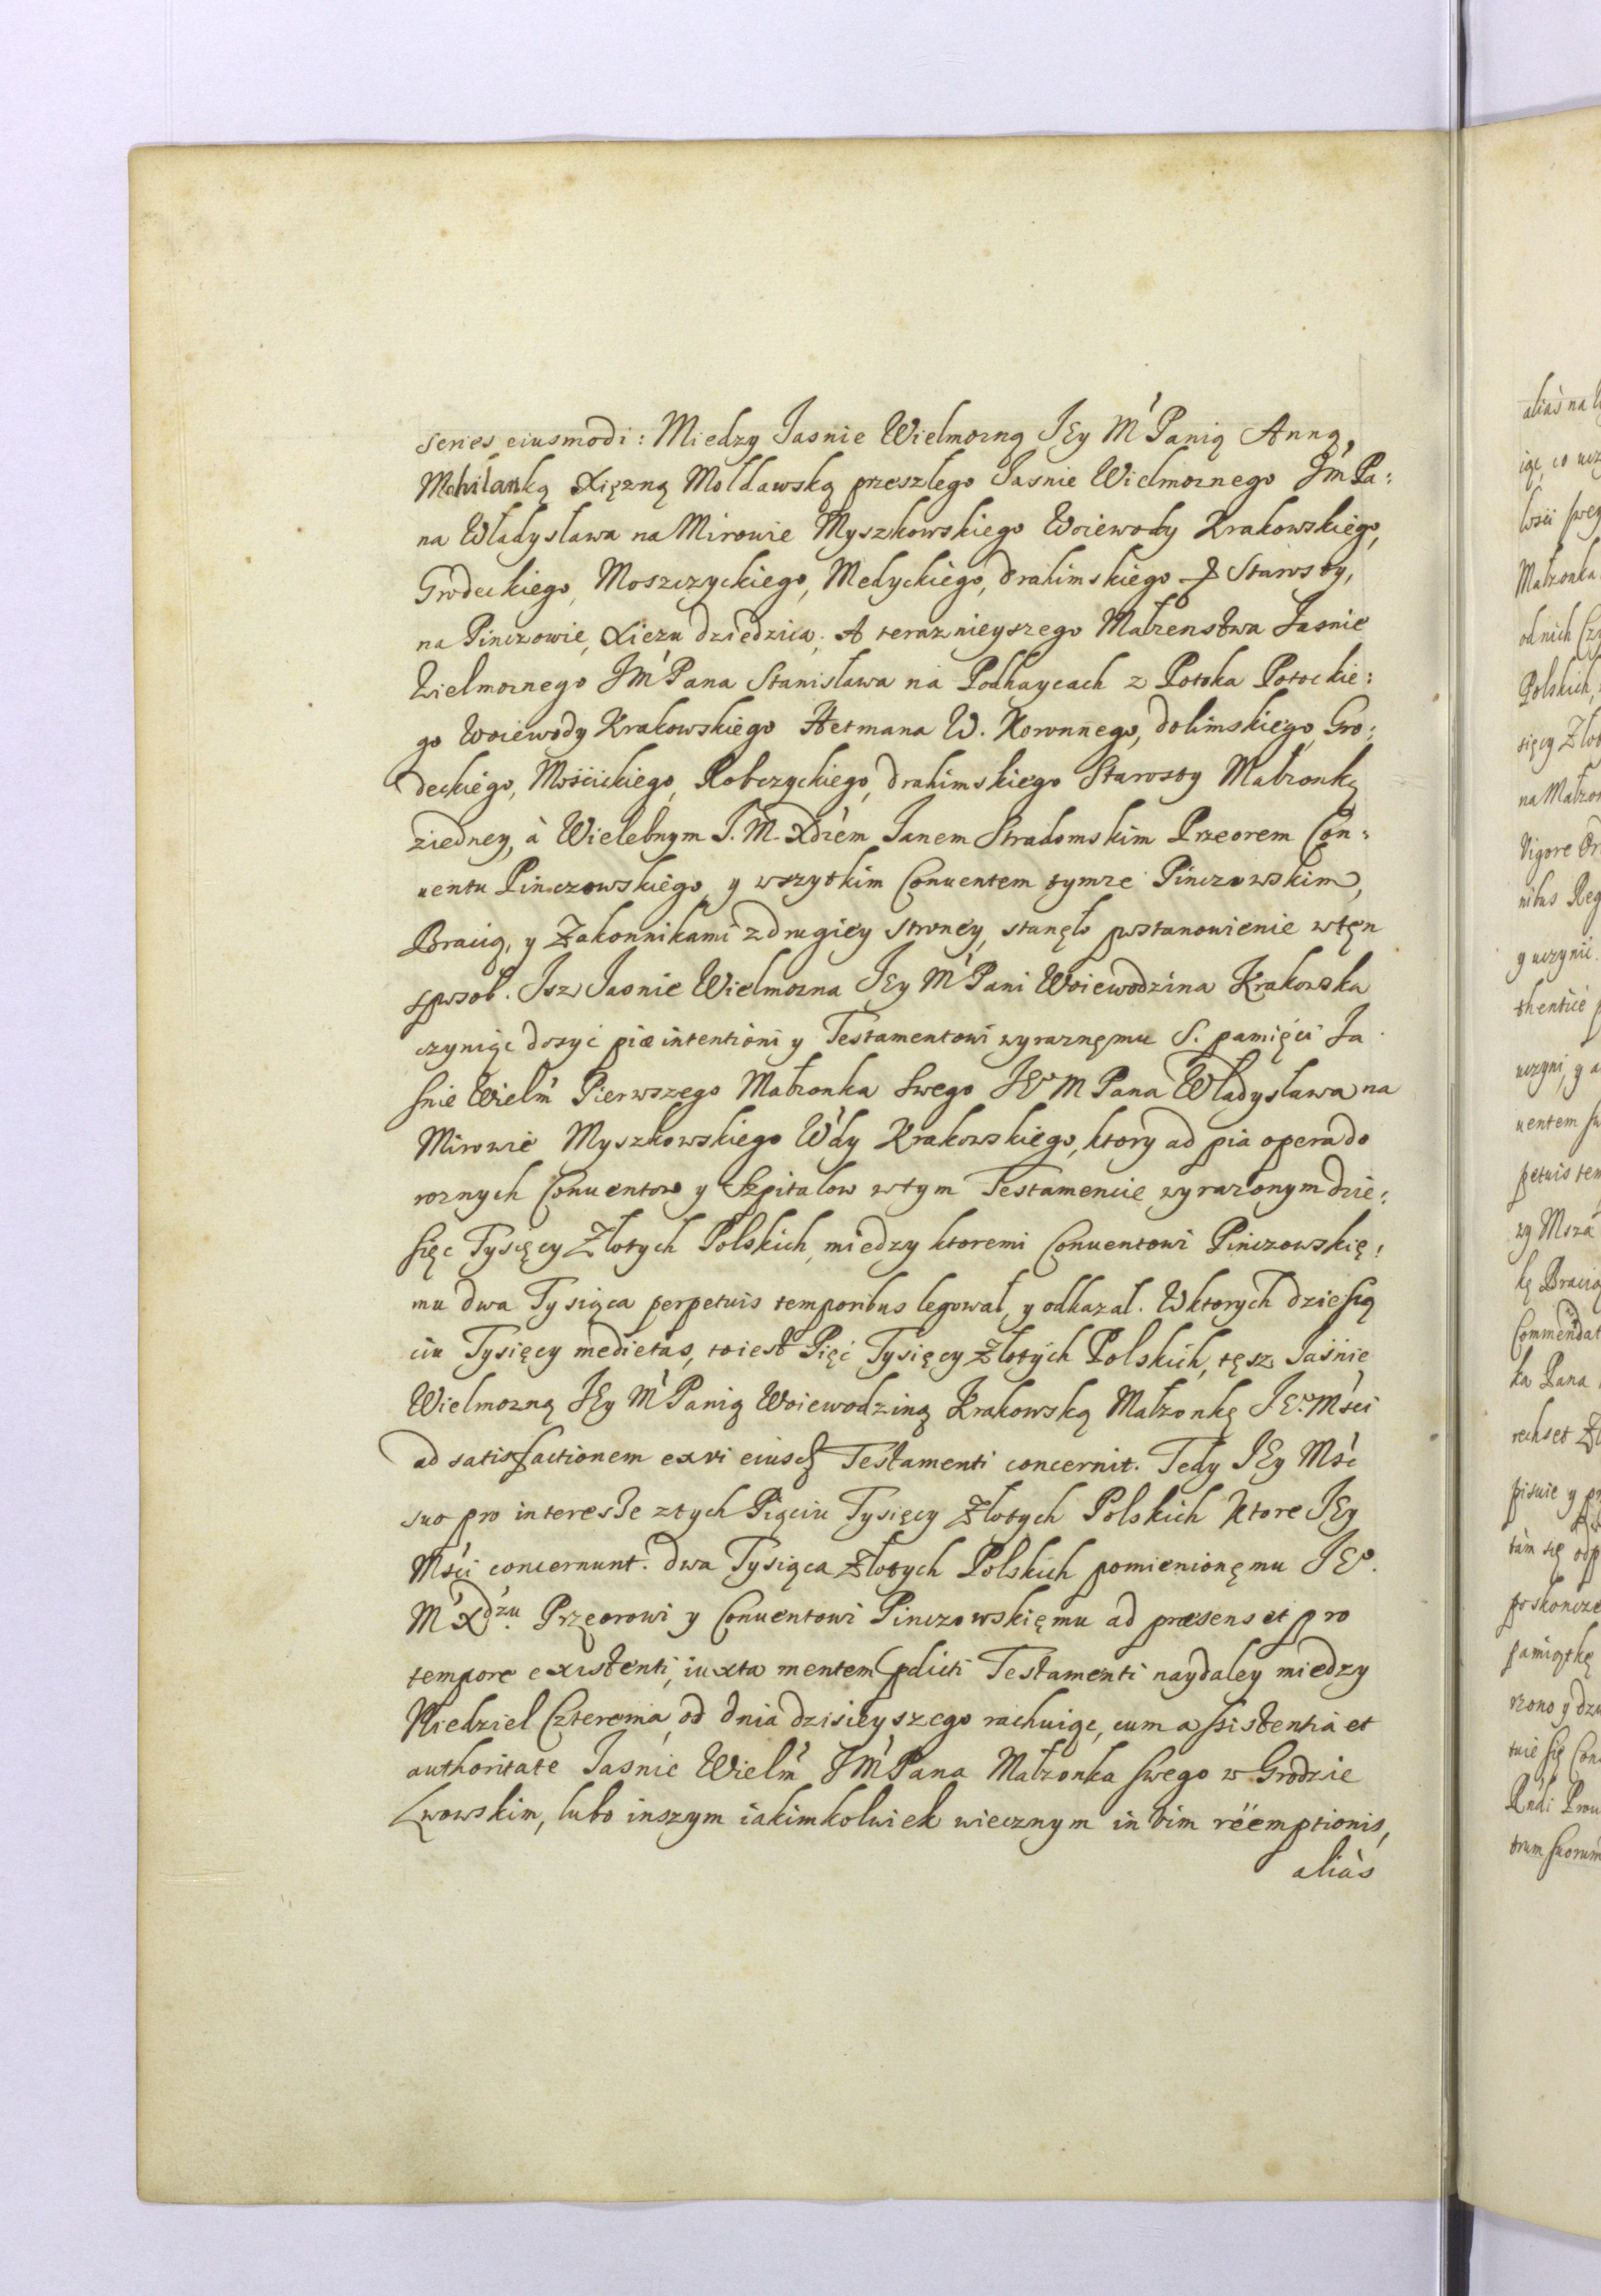 series eiusmodi: Miedzy Jasnie Wielmozną JEy M Panią Anną
Mohilanką Xięzną Mołdawską przeszłego Jasnie Wielmoznego JM Pa:
na Władysława na Mirowie Myszkowskiego Woiewody Krakowskiego,
Grodeckiego, Moszczyckiego, Medyckiego, drahimskiego & Starosty,
na Pinczowie, Xiezu dziedzica. A teraznieyszego Małzenstwa Jasnie
Wielmoznego JM Pana Stanisława na Podhaycach z Potoka Potockie:
go Woiewody Krakowskiego Hetmana W. Koronnego, dolimskiego, Gro:
deckiego, Mościckiego, Robczyckiego, drahimskiego Starosty Małzonką
ziedney, à Wielebnym J. M. Xdzem Janem Stradomskim Przeorem Con:
uentu Pinczowskiego, y wszytkim Conuentem tymze Pinczowskim,
Bracią, y Zakonnikami z drugiey strony, stanęło postanowienie w tęn
sposob. Isz Jasnie Wielmozna JEy M Pani Woiewodzina Krakowska
czyniąc dosyć piæ intentioni y Testamentowi wyraznęmu S. pamięci Ja
śnie Wielm Pierwszego Małzonka swego JEo M Pana Władysława na
Mirowie Myszkowskiego Wdy Krakowskiego, ktory ad pia opera do
roznych Conuentow y Szpitalow w tym Testamencie wyrazonym dzie:
sięc Tysięcy Złotych Polskich, miedzy ktoremi Conuentowi Pinczowskię:
mu dwa Tysiąca perpetuis temporibus legował, y odkazał. W ktorych dziesią
ciu Tysięcy medietas, to iest Pięć Tysięcy Złotych Polskich, tęsz Jaśnie
Wielmozną JEy M Panią Woiewodziną Krakowską Małzonkę JEo Mści
ad satisfactionem ex vi eiusd Testamenti concernit. Tedy JEy Mść
suo pro interesse z tych Pięciu Tysięcy Złotych Polskich ktore JEy
Mści concernunt. dwa Tysiąca Złotych Polskich pomienionęmu JEo.
M Xdzu Przeorowi y Conuentowi Pinczowskięmu ad præsens et pro
tempore existenti, iuxta mentem pdicti Testamenti naydaley miedzy
Niedziel Czterema, od dnia dzisieyszego rachuiąc, cum assistentia et
authoritate Jasnie Wielm JM Pana Małzonka swego w Grodzie
Lwowskim, lubo inszym iakimkolwiek wiecznym in vim reemptionis,
alias